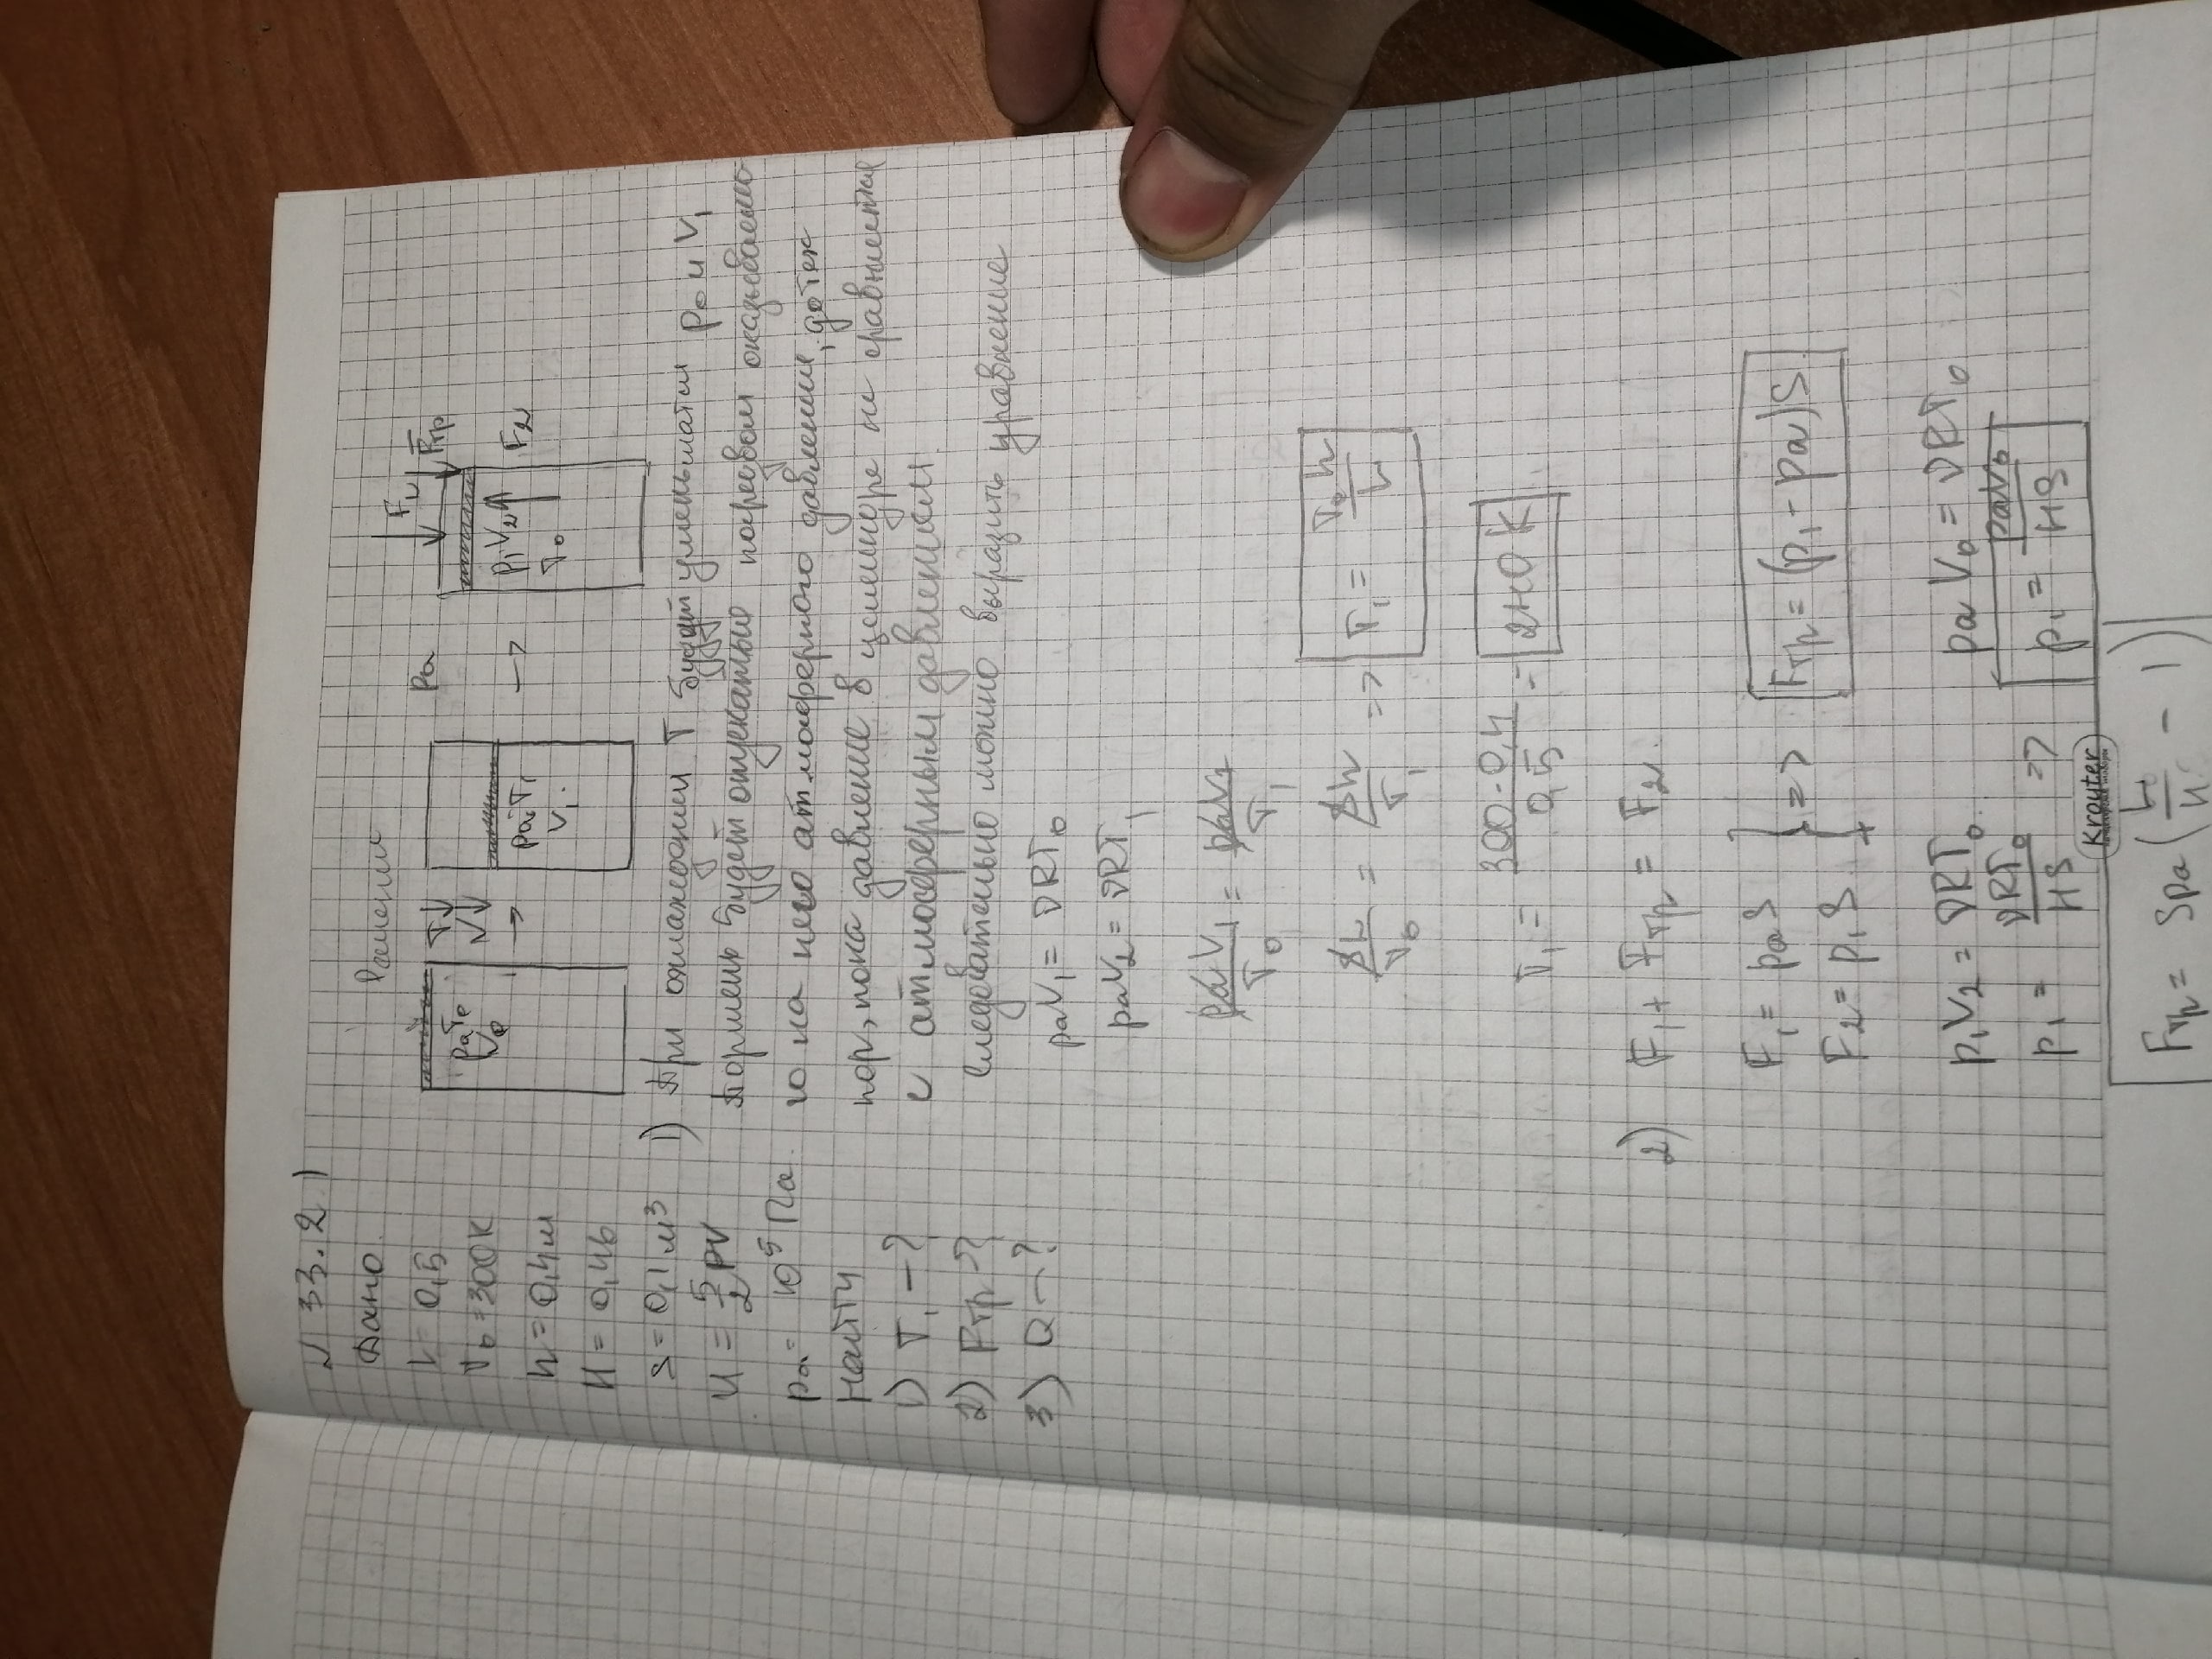 N 33.2.1)
Дано
Решение
L = 0,5
T₀ = 300K
h = 0,4м
H = 0,46
S = 0,1 м³
U = 5/2 PV
pₐ = 10⁵ Па
Найти
1) T₁ - ?
2) Fтр - ?
3) Q - ?
pₐT₀
V₀
T↓
V↓
→
pₐT₁
V₁
→
pₐ
F₁
Fтр
p₁V₂
T₀
F₂
1) При охлаждении T будут уменьшатся p₀ и V₁
Поршень будет опускатью поревом оказываемо-
го на него атмосферного давления, до тех
пор, пока давление в цилиндре не сравниется
с атмосферным давлением.
Следовательно можно выразить уравнение
pₐV₁ = νRT₀
pₐV₂ = νRT₁
pₐV₁/T₀ = pₐV₂/T₁
SL/T₀ = Sh/T₁ => T₁ = T₀h/L
T₁ = 300·0,4/0,5 = 240 K
2) F₁ + Fтр = F₂
F₁ = pₐS
F₂ = p₁S } => Fтр = (p₁ - pₐ)S
p₁V₂ = νRT₀ pₐV₀ = νRT₀
p₁ = νRT₀/HS => p₁ = pₐV₀/HS
Krauter
Fтр = Spₐ(L/H - 1)